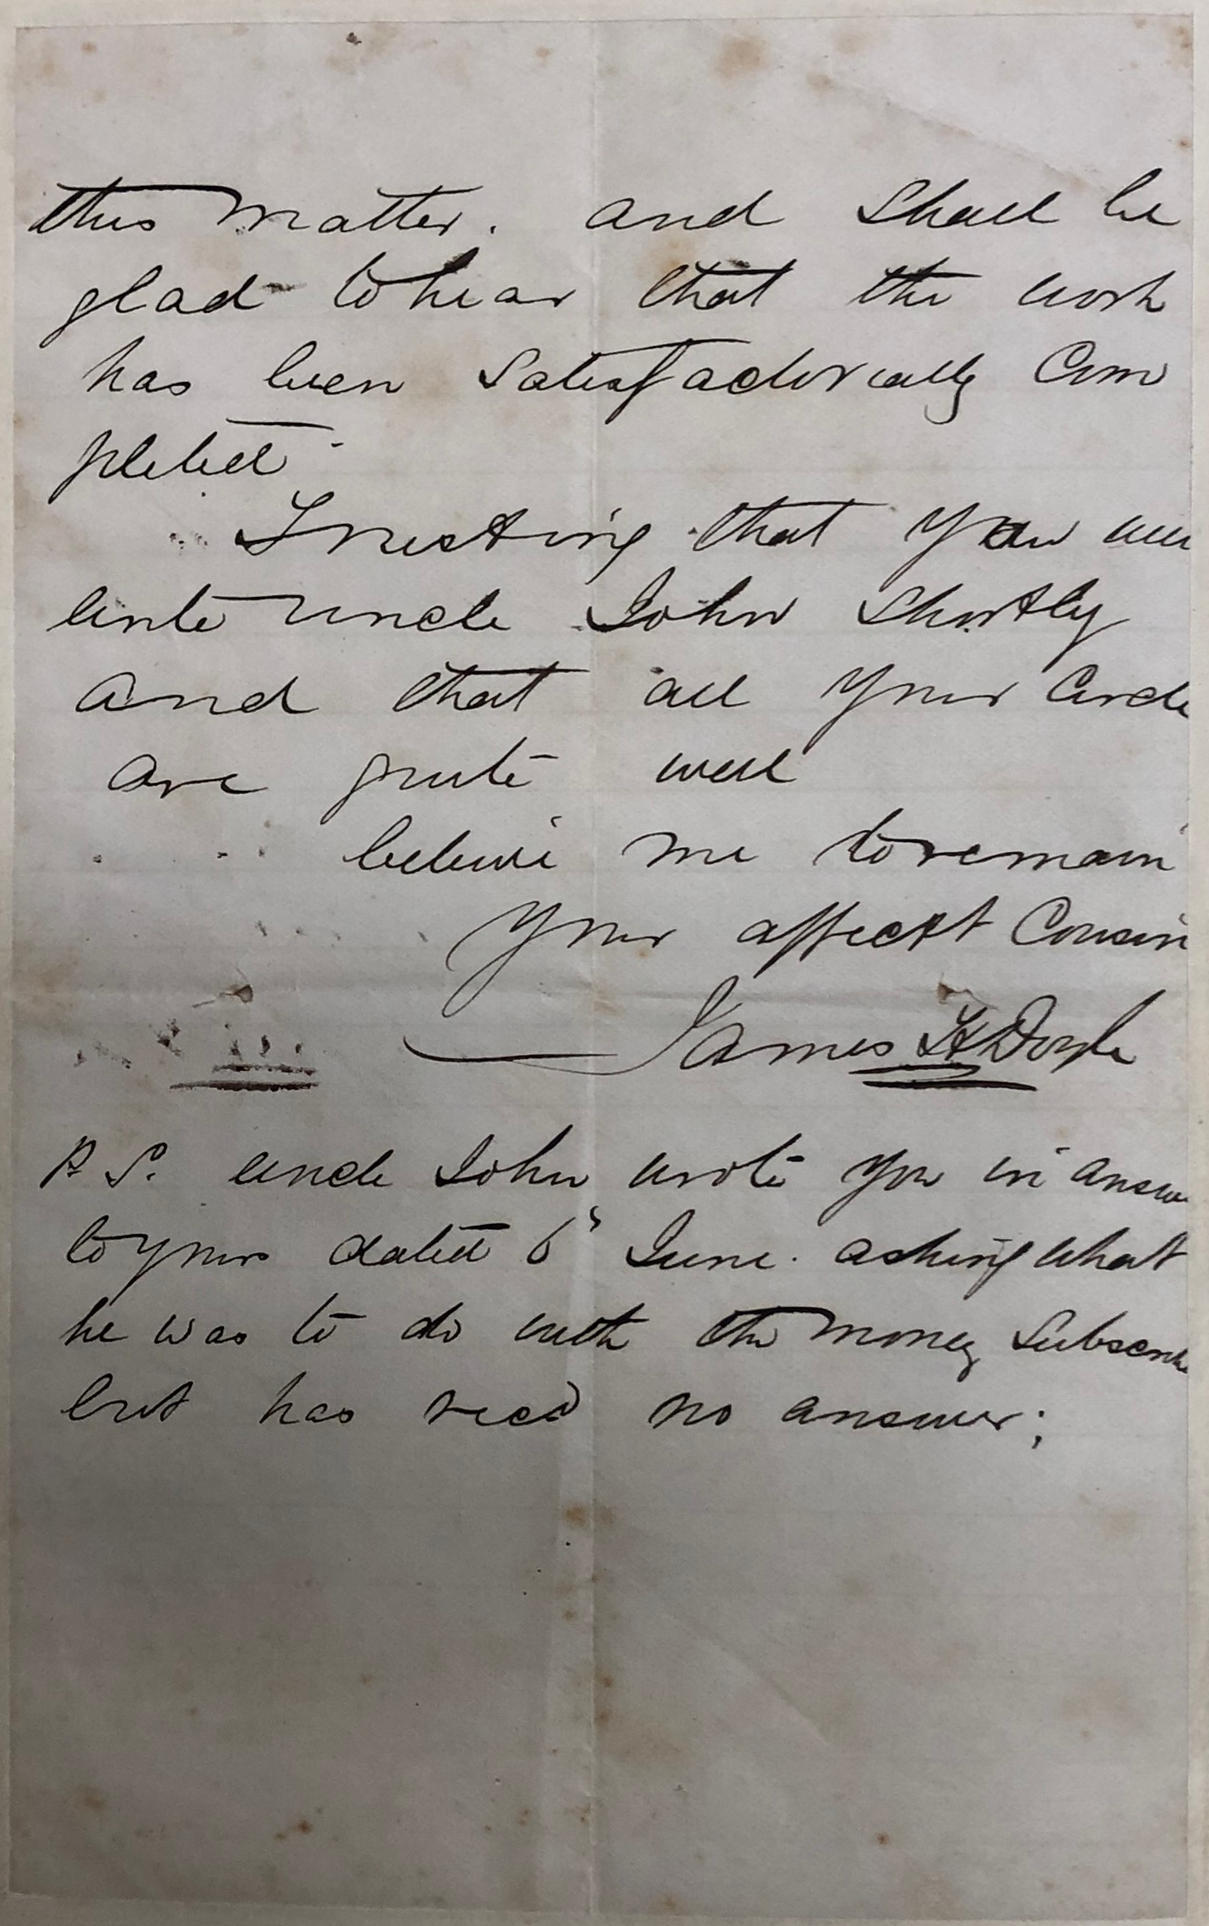 this matter. and shall be
glad to hear that the work
has been Satisfactorially Com
pleted.
Trusting that you will
write uncle John Shortly
and that all your Circle
are quite well
believe me to remain
Your affect Cousin
James H Doyle
P S. uncle John wrote you in answ
to yours dated 6" June. asking what
he was to do with the money Subscribe
but has recd no answer;